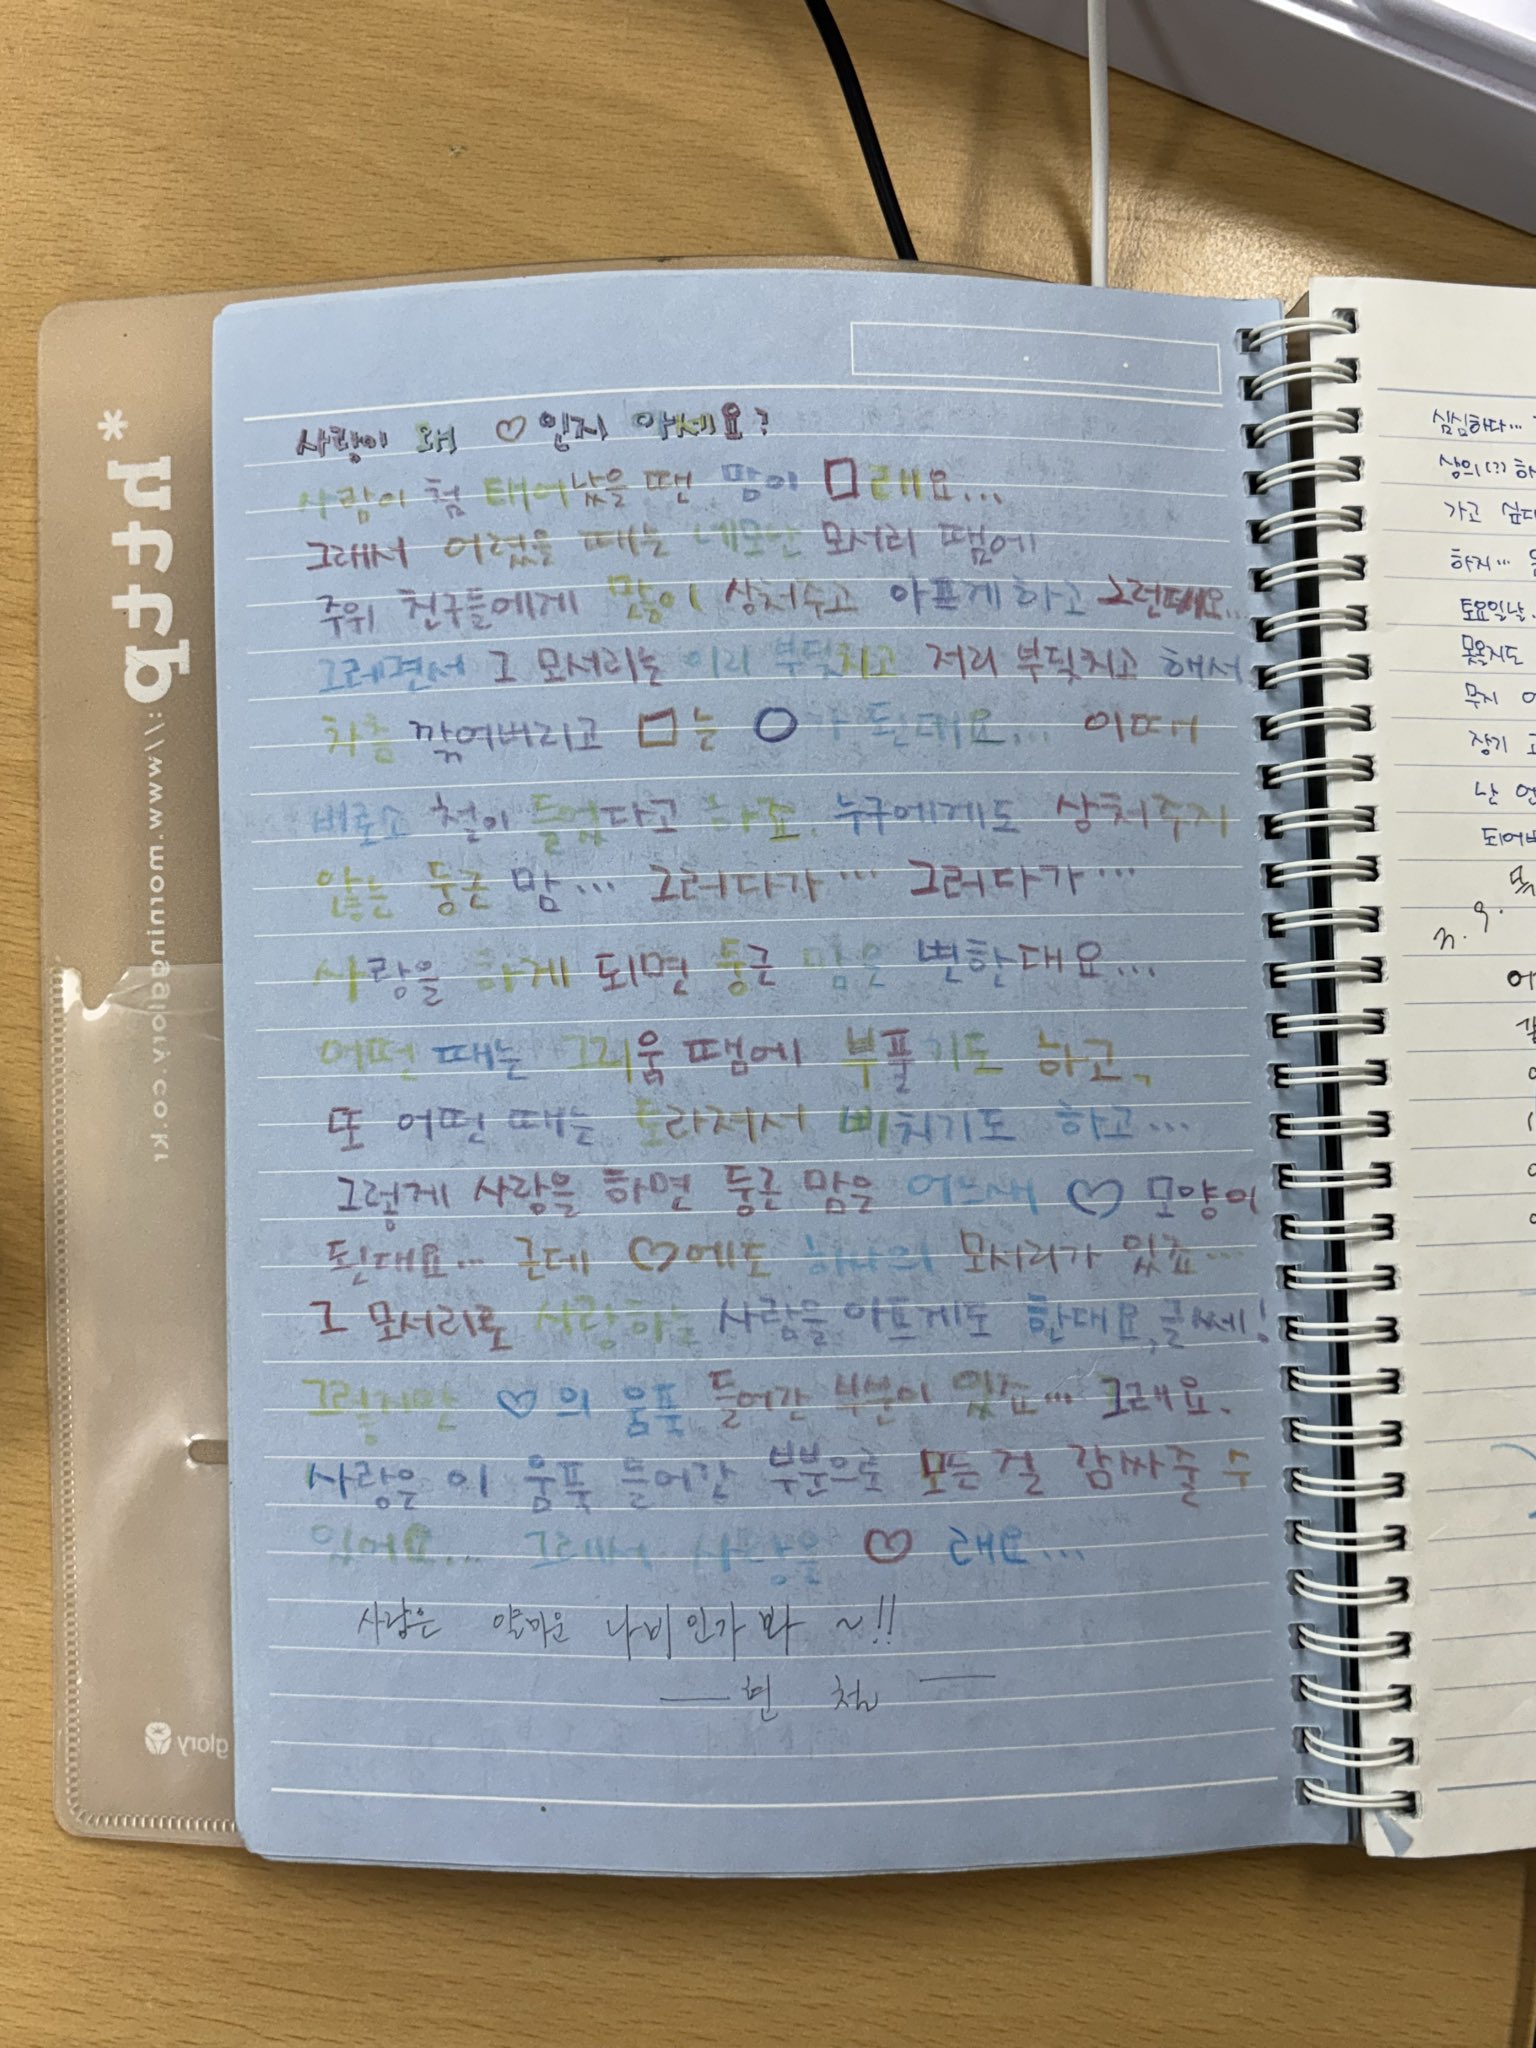 사랑이 왜 ♡인지 아세요?
사람이 첨 태어났을 땐 맘이 □래요...
그래서 어렸을 때는 네모난 모서리 땜에
주위 친구들에게 많이 상처주고 아프게 하고 그런데요...
그러면서 그 모서리는 이리 부딪치고 저리 부딪치고 해서
차츰 깎여버리고 □는 ○가 된데요... 이때
비로소 철이 들었다고 하죠. 누구에게도 상처주지
않는 둥근 맘... 그러다가... 그러다가...
사랑을 하게 되면 둥근 맘은 변한대요...
어떤 때는 그리움 땜에 부풀기도 하고,
또 어떤 때는 토라져서 삐치기도 하고...
그렇게 사랑을 하면 둥근 맘은 어느새 ♡ 모양이
된대요... 근데 ♡에도 하나의 모서리가 있죠...
그 모서리로 사랑하는 사람을 아프게도 한대요, 글쎄!
그렇지만 ♡의 움푹 들어간 부분이 있죠... 그래요.
사랑은 이 움푹 들어간 부분으로 모든 걸 감싸줄 수
있어요... 그래서 사랑을 ♡ 래요...
사랑은 얄미운 나비인가 봐 ~!!
심심하다...
가고
하지...
토요일날
장기
난
www.morningglory.co.kr
glory